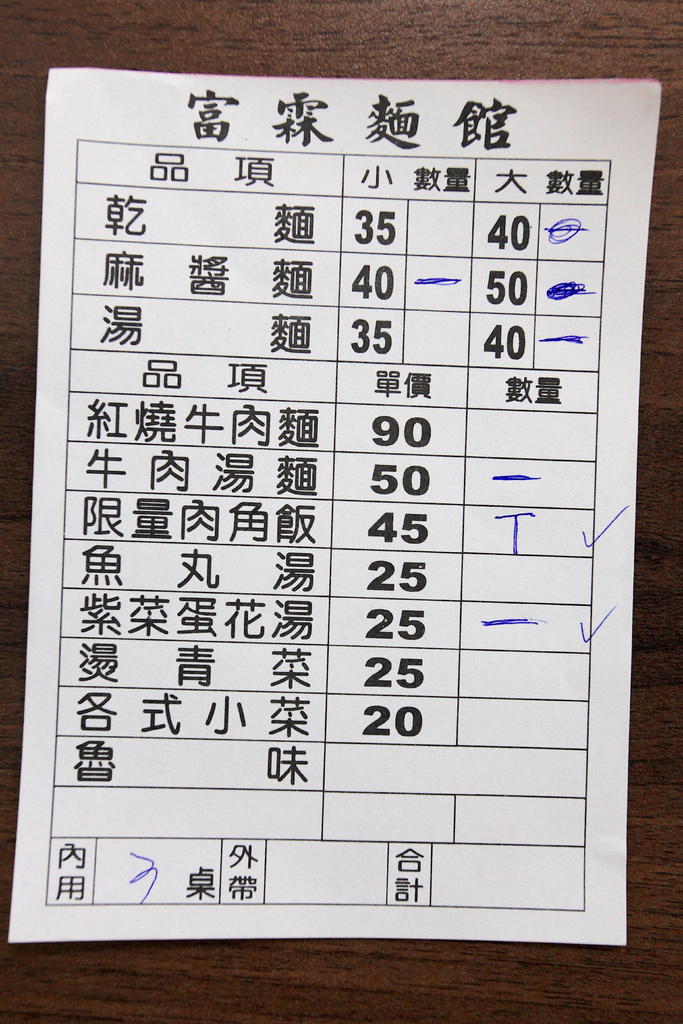 富霖麵館
品項 小 數量 大 數量
乾麵 35 40
麻醬麵 40 一 50
湯麵 35 40 一
品項 單價 數量
紅燒牛肉麵 90
牛肉湯麵 50 一
限量肉角飯 45 T ✓
魚丸湯 25
紫菜蛋花湯 25 一 ✓
燙青菜 25
各式小菜 20
魯味
內用 桌 外帶 合計